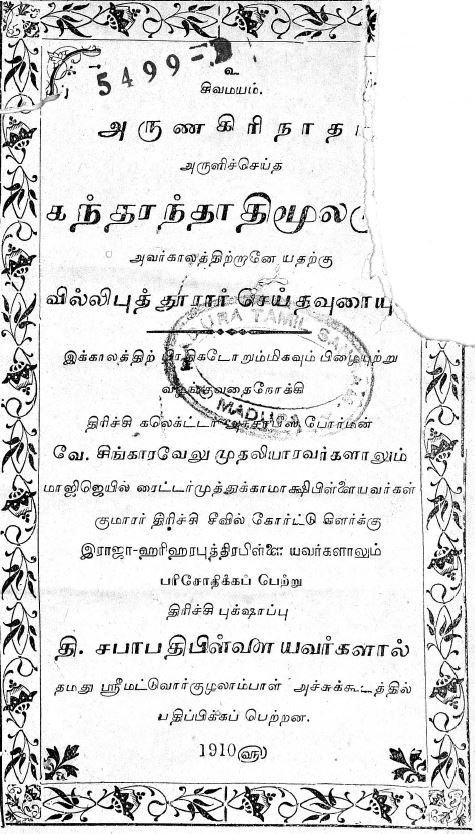 5499-
உ
சிவமயம்.
அருணகிரிநாத
அருளிச்செய்த
கந்தரந்தாதிமூல
அவர்காலத்திற்றானே யதற்கு
வில்லிபுத்தூரார் செய்தவுரையு
இக்காலத்திற் பிரதிகடோறும்மிகவும் பிழையுற்று
வழங்குவதைநோக்கி
திரிச்சி கலெக்ட்டர் ஆபீஸ் போர்மன்
வே. சிங்காரவேலு முதலியாரவர்களாலும்
மாஜிஜெயில் ரைட்டர்முத்துக்காமாக்ஷிபிள்ளையவர்கள்
குமாரர் திரிச்சி சீவில் கோர்ட்டு கிளர்க்கு
இராஜா-ஹரிஹரபுத்திரபிள்ளை யவர்களாலும்
பரிசோதிக்கப் பெற்று
திரிச்சி புக்ஷாப்பு
தி. சபாபதிபிள்ளை யவர்களால்
தமது ஸ்ரீமட்டுவார்குழலாம்பாள் அச்சுக்கூடத்தில்
பதிப்பிக்கப் பெற்றன.
1910௵
MADURA TAMIL SAN
MADURA